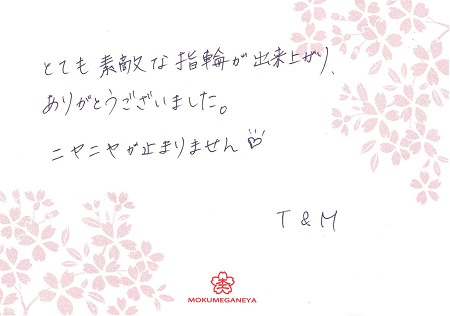 とても素敵な指輪が出来上がり、
ありがとうございました。
ニヤニヤが止まりません♡
T & M
MOKUMEGANEYA